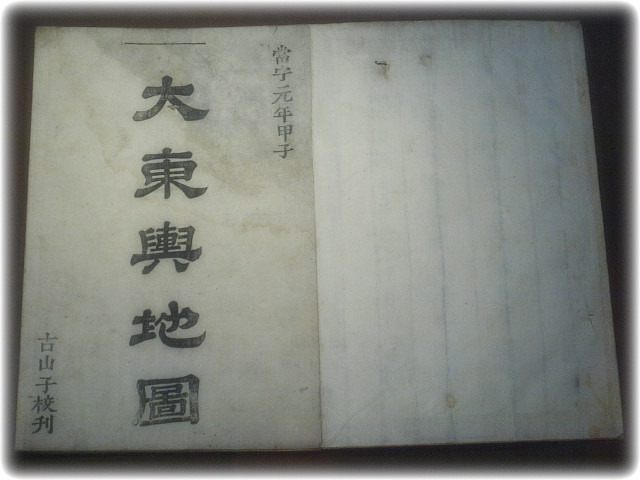 當宁元年甲子
大東輿地圖
古山子校刊